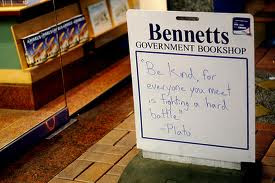 Bennetts
GOVERNMENT BOOKSHOP
"Be kind, for
everyone you meet
is fighting a hard
battle"
-Plato